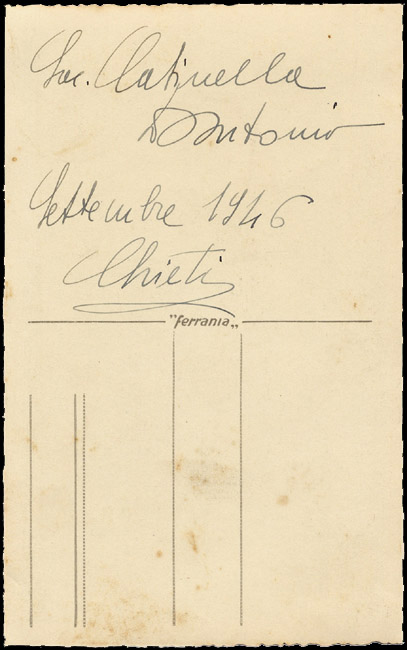 Catinella
D'Antonio
Settembre 1946
Chieti
"ferrania"